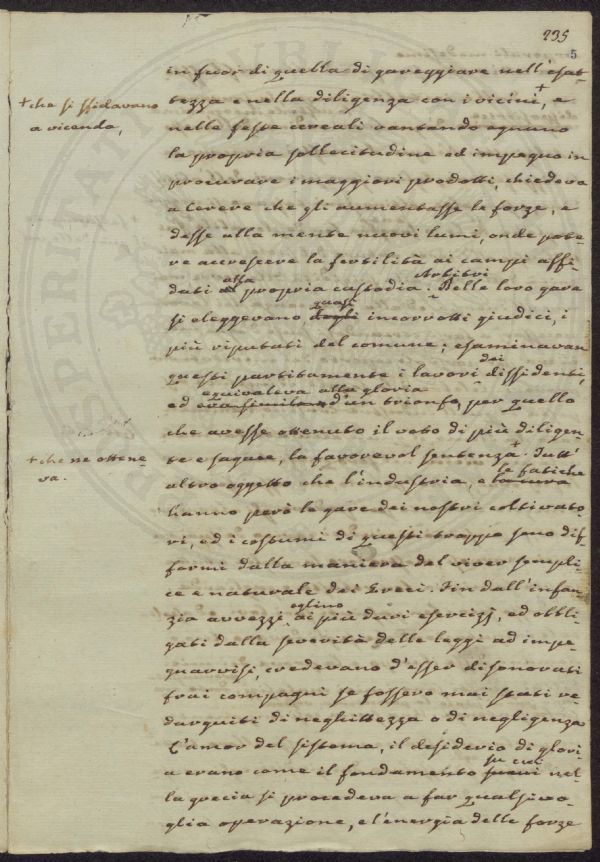 235
5
in fuori di quella di gareggiare nell'esat-
+ che si sfidavano
a vicenda,
tezza e nella diligenza con i vicini +, e
nelle feste cereali vantando ognuno
la propria sollecitudine ed impegno in
procurare i maggiori prodotti, chiedeva
a Cerere che gli aumentasse le forze, e
desse alla mente nuovi lumi, onde pote-
re accrescere la fertilità ai campi affi-
alla Arbitri
dati propria custodia. Delle loro gare
quasi
si eleggevano degli incorrotti giudici, i
più riputati del comune; esaminavan
dei
questi partitamente i lavori dissidenti,
equivaleva alla gloria
ed era simile d'un trionfo, per quello
che avesse ottenuto il voto di più diligen-
+ che ne ottene-
va.
te e sagace, la favorevol sentenza +. Tutt'
le fatiche
altro oggetto che l'industria, e
hanno però le gare dei nostri coltivato-
ri, ed i costumi di questi troppo sono dif-
formi dalla maniera del viver sempli-
ce e naturale dei Greci. Fin dall'infan-
eglino
zia avvezzi ai più duri esercizj, ed obbli-
gati dalla severità delle leggi ad impe-
gnarvisi, credevano d'esser disonorati
fra i compagni se fossero mai stati re-
darguiti di neghittezza o di negligenza
L'amor del sistema, il desiderio di glori-
su cui
a erano come il fondamento nel-
la grecia si procedeva a far qualsivo-
glia operazione, e l'energia delle forze